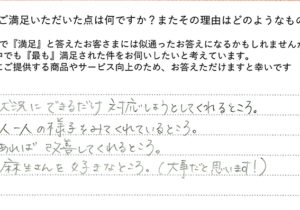 ご満足いただいた点は何ですか？またその理由はどのようなもの
で『満足』と答えたお客さまには似通ったお答えになるかもしれませんが
中でも『最も』満足された件をお伺いしたいと考えています。
にご提供する商品やサービス向上のため、お答えいただけますと幸いです
状況にできるだけ対応しようとしてくれるところ。
人一人の様子をみてくれているところ。
あれば改善してくれるところ。
麻生さんを好きなところ。(大事だと思います!)